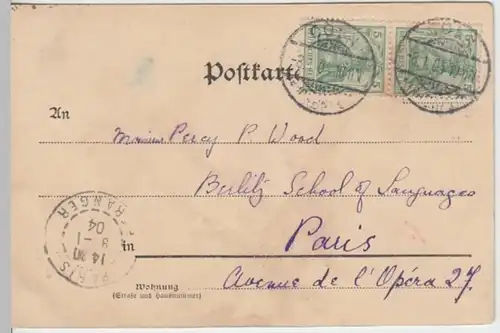 Postkarte
An
Monsieur Percy P Wood
Berlitz School of Languages
in Paris
Avenue de l'Opéra 27.
Wohnung
(Straße und Hausnummer)
PARIS
14 30
9 - 1
04
ETRANGER
5